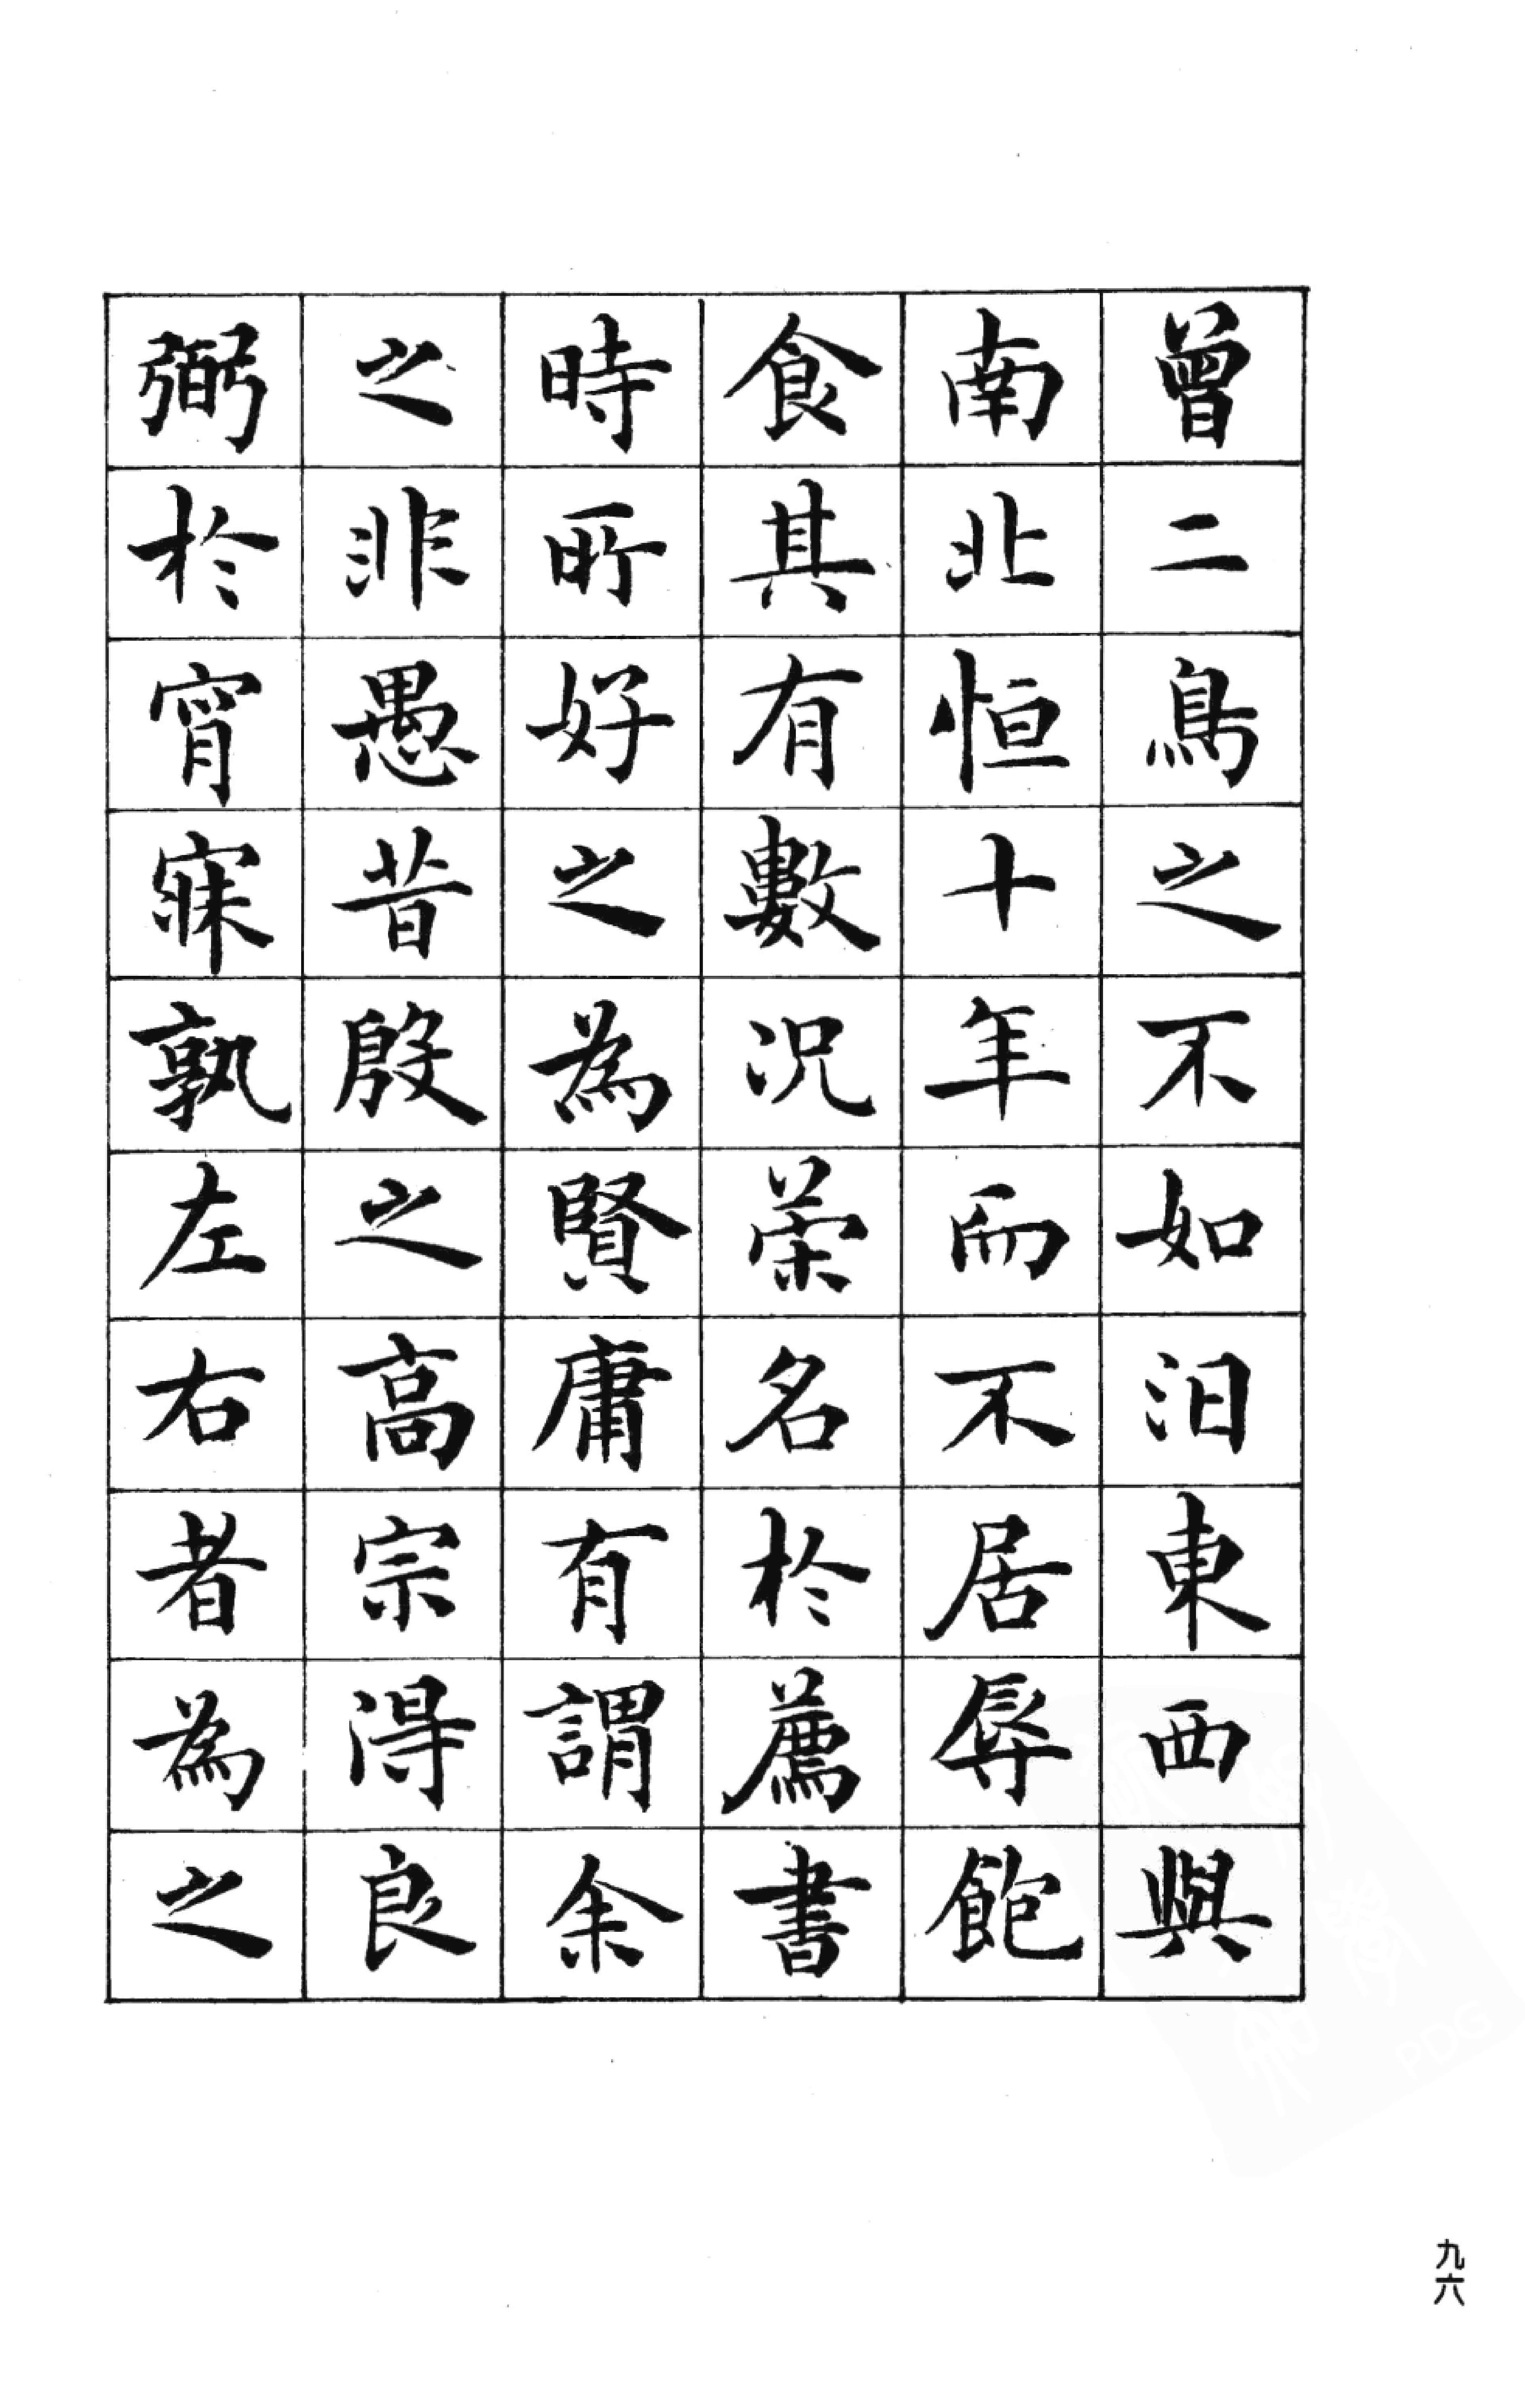 曾二鳥之不如汨東西與
南北恒十年而不居辱飽
食其有數況榮名於薦書
時所好之為賢庸有謂余
之非愚昔殷之高宗得良
弼於宵寐孰左右者為之
九六